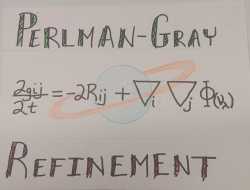 PERLMAN-GRAY
∂gij/∂t = -2Rij + ∇i ∇j Φ(v,)
REFINEMENT